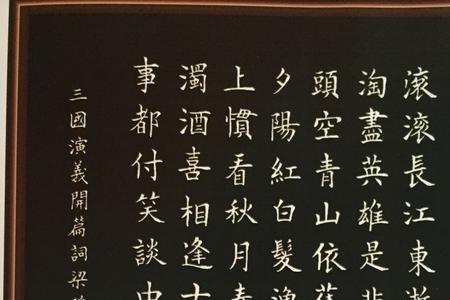 滚滚長江東逝
淘盡英雄是非
頭空青山依舊
夕陽紅白髮漁
上慣看秋月春
濁酒喜相逢
事都付笑談中
三國演義開篇詞梁